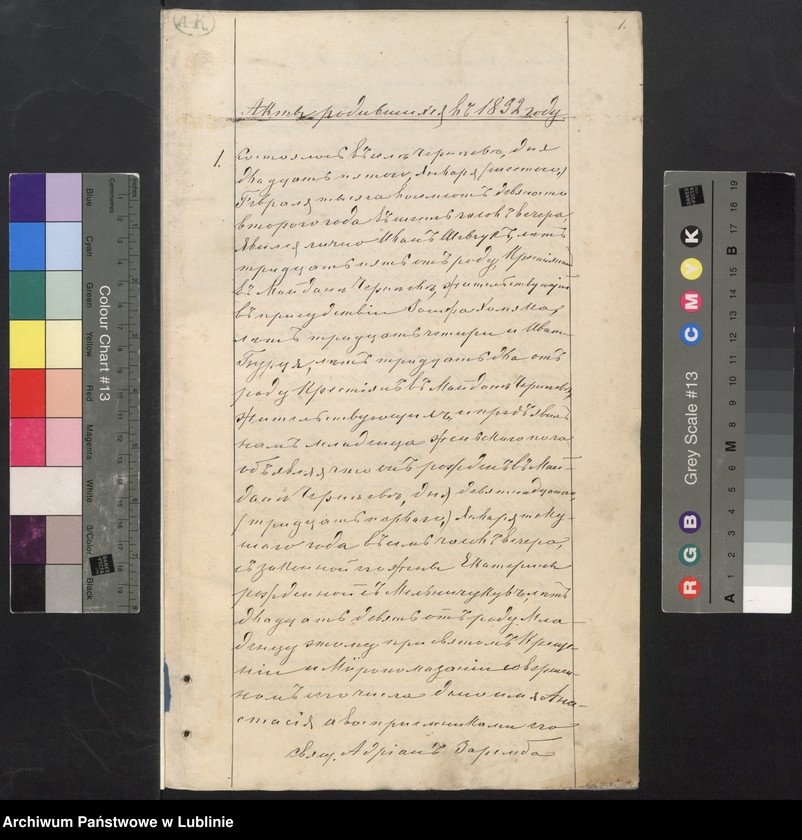 А.К.
1.
Акты родившихся въ 1892 году
1. Состоялось въ селѣ Чернѣевѣ, дня
двадцать пятаго Января (шестаго)
Февраля тысяча восемьсотъ девяносто
второго года въ шесть часов вечера,
явился лично Иванъ Шевчукъ, лѣтъ
тридцать пять отъ роду, Крестьянин
въ Майданѣ Чернѣевѣ, жительствующій
въ присудствіи Хомяка,
лѣтъ тридцать четыри и Ивана
лѣтъ тридцать два отъ
роду Крестьянъ въ Майданѣ Чернѣевѣ
жительствующихъ, и предъявилъ
намъ младенца женскаго пола
объявляя что онъ рожденъ въ Май-
данѣ Чернѣевѣ, дня девятнадцатаго
(тридцать перваго) Января теку-
щаго года въ семь часов вечера,
съ законной его жены Екатерины
рожденной съ Мельничуковъ, лѣтъ
двадцать девять отъ роду. Мла-
денцу этому при святомъ Креще-
ніи и Мѵропомазаніи совершен-
номъ сего числа дано имя Ана-
стасія а воспріемниками его
свящ. Адріанъ Заремба
Colour Chart #13
Blue
Cyan
Green
Yellow
Red
Magenta
White
3/Color
Black
Grey Scale #13
R G B C M Y K
A 1 2 3 4 5 6 M 8 9 10 11 12 13 14 15 B 17 18 19
Archiwum Państwowe w Lublinie